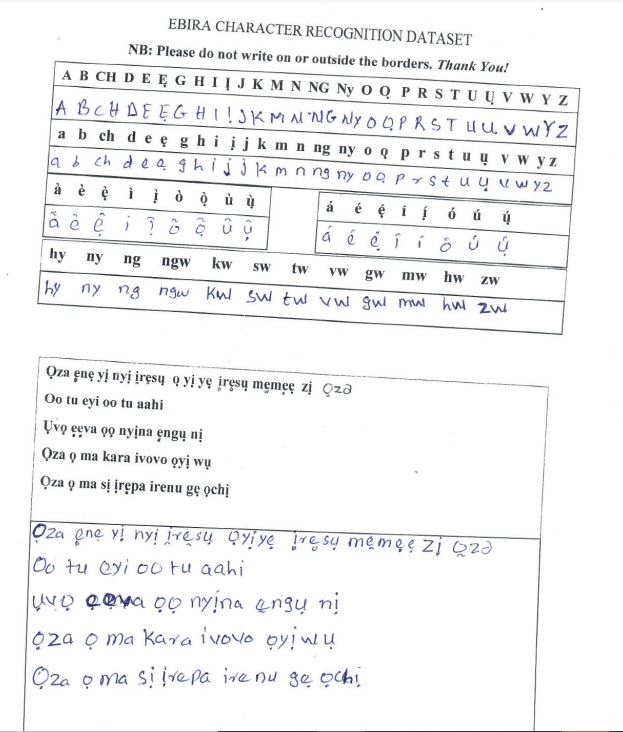 EBIRA CHARACTER RECOGNITION DATASET
NB: Please do not write on or outside the borders. Thank You!
A B CH D E Ẹ G H I Ị J K M N NG Ny O Ọ P R S T U Ụ V W Y Z
A B CH D E Ẹ G H I Ị J K M N NG Ny O Ọ P R S T U Ụ V W Y Z
a b ch d e ẹ g h i ị j k m n ng ny o ọ p r s t u ụ v w y z
a b ch d e ẹ g h i ị j k m n ng ny o ọ p r s t u ụ v w y z
à è ẹ̀ ì ị̀ ò ọ̀ ù ụ̀
á é ẹ́ í ị́ ó ú ụ́
hy ny ng ngw kw sw tw vw gw mw hw zw
hy ny ng ngw kw sw tw vw gw mw hw zw
Ọza ẹnẹ yị nyị ịrẹsụ ọ yị yẹ ịrẹsụ mẹmẹẹ zị Ọza
Oo tu eyi oo tu aahi
Ụvọ ẹẹva ọọ nyịna ẹngụ nị
Ọza ọ ma kara ivovo ọyị wụ
Ọza ọ ma sị ịrẹpa irenu gẹ ọchị
Ọza ẹnẹ yị nyị ịrẹsụ ọyịyẹ ịrẹsụ mẹmẹẹ zị Ọza
Oo tu eyi oo tu aahi
Ụvọ ọọ nyịna ẹngụ nị
Ọza ọ ma kara ivovo ọyị wụ
Ọza ọ ma sị ịrepa irenu gẹ ọchị